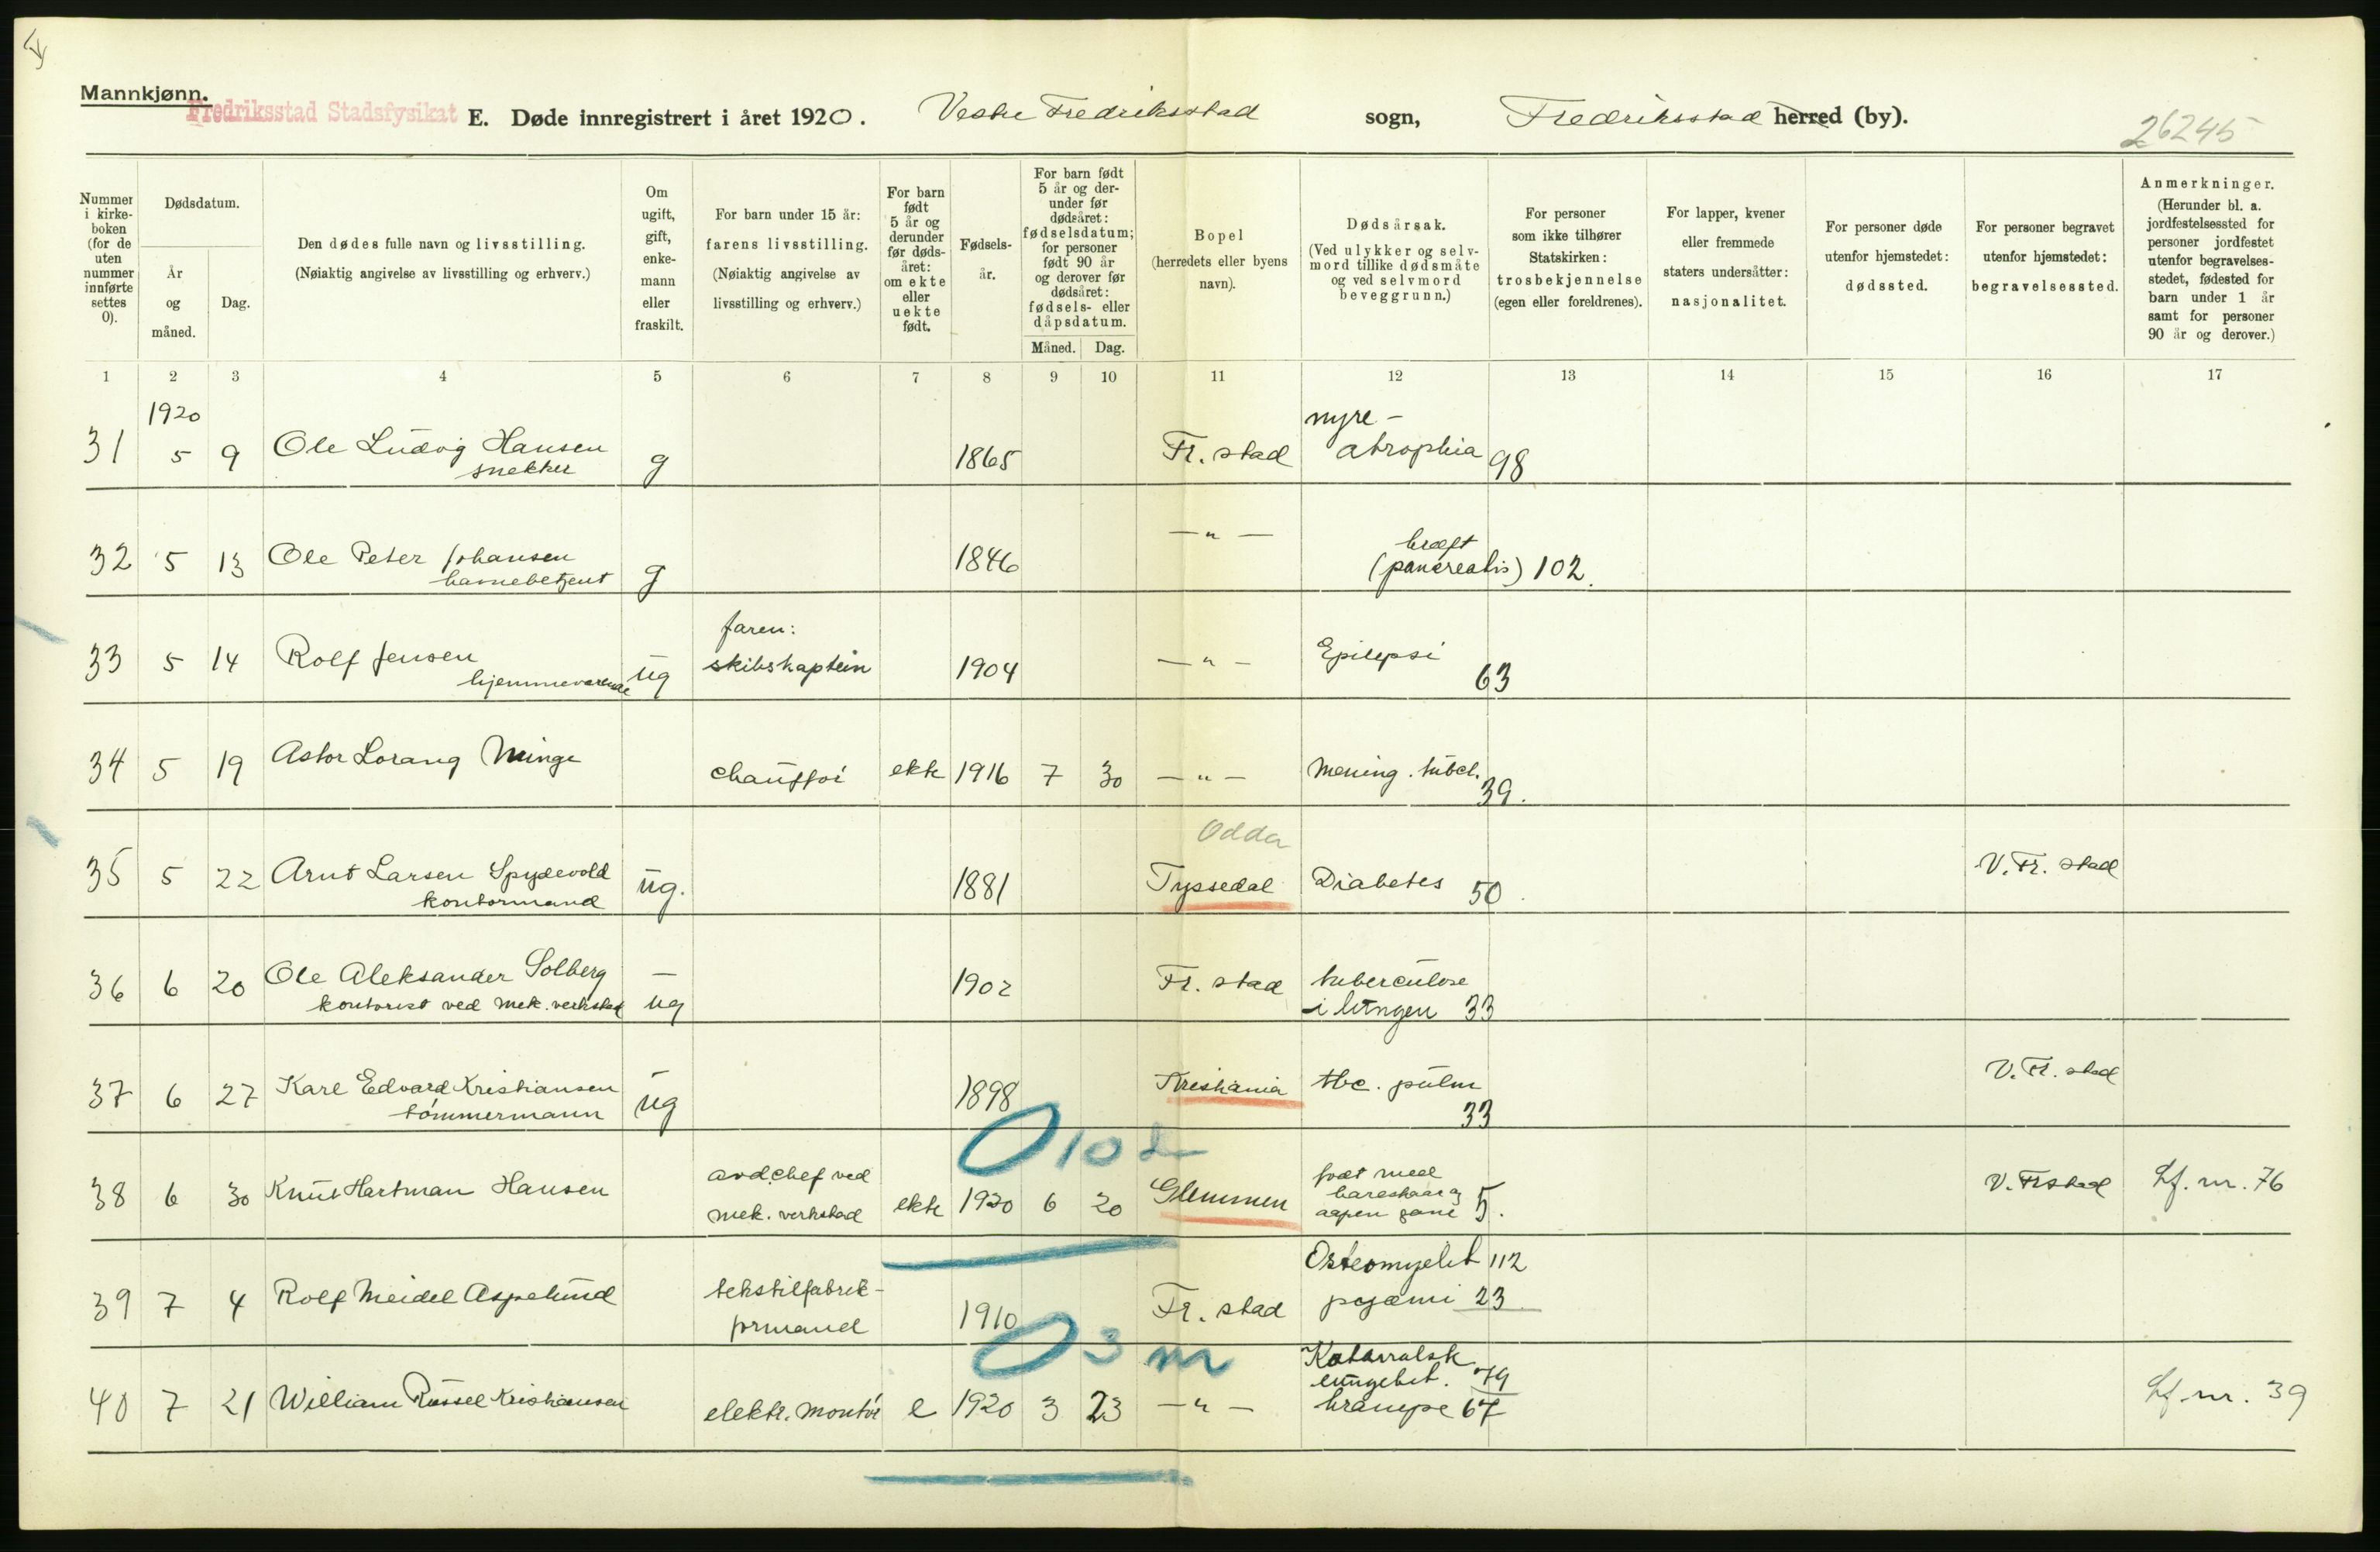 Mannkjønn.
Fredriksstad Stadsfysikat E. Døde innregistrert i året 1920. Vestre Fredriksstad sogn, Fredriksstad herred (by).
26245
Nummer i kirke- boken (for de uten nummer innførte settes 0).
Dødsdatum.
År og måned.
Dag.
Den dødes fulle navn og livsstilling.
(Nøiaktig angivelse av livsstilling og erhverv.)
Om ugift, gift, enke- mann eller fraskilt.
For barn under 15 år:
farens livsstilling.
(Nøiaktig angivelse av livsstilling og erhverv.)
For barn født 5 år og derunder før døds- året: om ekte eller uekte født.
Fødsels- år.
For barn født 5 år og der- under før dødsåret: fødselsdatum; for personer født 90 år og derover før dødsåret: fødsels- eller dåpsdatum.
Måned. Dag.
Bopel
(herredets eller byens navn).
Dødsårsak.
(Ved ulykker og selv- mord tillike dødsmåte og ved selvmord beveggrunn.)
For personer som ikke tilhører Statskirken: trosbekjennelse (egen eller foreldrenes).
For lapper, kvener eller fremmede staters undersåtter: nasjonalitet.
For personer døde utenfor hjemstedet: dødssted.
For personer begravet utenfor hjemstedet: begravelsessted.
Anmerkninger.
(Herunder bl. a. jordfestelsessted for personer jordfestet utenfor begravelses- stedet, fødested for barn under 1 år samt for personer 90 år og derover.)
1 2 3 4 5 6 7 8 9 10 11 12 13 14 15 16 17
1920
31 5 9 Ole Ludvig Hansen g 1865 Fr. stad nyre- atrophia 98
snekker
32 5 13 Ole Peter Johansen g 1846 —"— kræft (pancreatis) 102.
havnebetjent
33 5 14 Rolf Jensen ug faren: skibskaptein 1904 —"— Epilepsi 63
hjemmeværende
34 5 19 Astor Lorang Minge chauffør ekte 1916 7 30 —"— Mening. tubcl. 39.
Odda
35 5 22 Arnt Larsen Spydevold ug. 1881 Tyssedal Diabetes 50. V. Fr. stad
kontormand
36 6 20 Ole Aleksander Solberg — ug 1902 Fr. stad tuberculose i lungen 33
kontorist ved mek. verksted
37 6 27 Karl Edvard Kristiansen ug 1898 Kristiania tbc. pulm 33 V. Fr. stad
tømmermann
0 10 d
38 6 30 Knut Hartman Hansen avd.chef ved mek. verkstad ekte 1920 6 20 Glemmen født med hareskaar og aapen gane 5. V. Frstad Lf. nr. 76
39 7 4 Rolf Meidel Aspelund tekstilfabrik- formand 1910 Fr. stad Osteomyelit 112 pyæmi 23
0 3 m
40 7 21 William Russel Kristiansen elektr. montør e 1920 3 23 —"— Katarralsk lungebet. 79 krampe 67 Lf. nr. 39